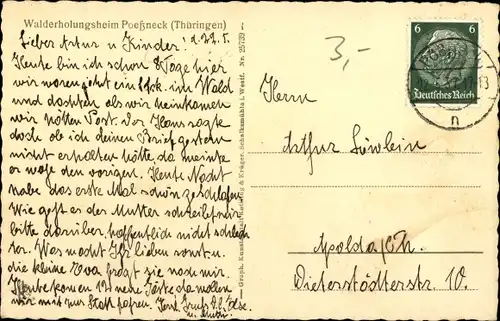 Walderholungsheim Poeßneck (Thüringen)
d. 22. 5.
Lieber Artur u Kinder!
Heute bin ich schon Tage hier
wir waren im Wald
und dachten als wir heimkamen
wir hätten Post. Der Hans sagte
doch ob ich deinen Brief gestern
nicht erhalten hätte da meinte
er wäre den vorigen. Heute Nacht
habe das erste Mal schön geschlafen.
Wie geht es der Mutter schreibe mir
bitte darüber hoffentlich nicht schlech
ter. Was macht Ihr lieben sonst u.
die kleine Eva fragt sie nach mir.
Heute kommen neue Gäste da wollen
wir mit zur Stadt fahren.
Graph. Kunstanstalt Krüger, Schalksmühle i. Westf. Nr. 25739
3,-
6 6
Deutsches Reich
n
Herrn
Arthur Löwlein
Apolda/Th.
Dieterstädterstr. 10.